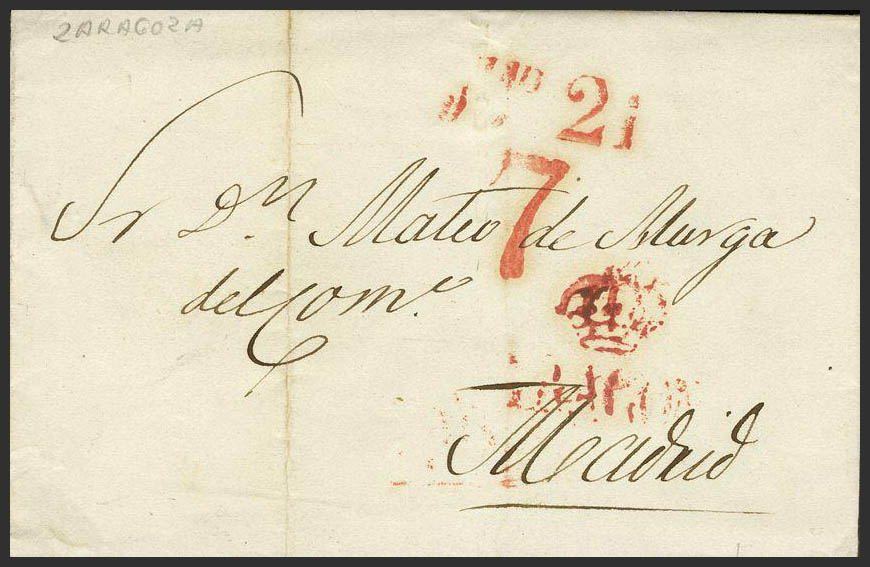 ZARAGOZA
21
7
Sr Dn. Mateo de Murga
del Come.
Madrid